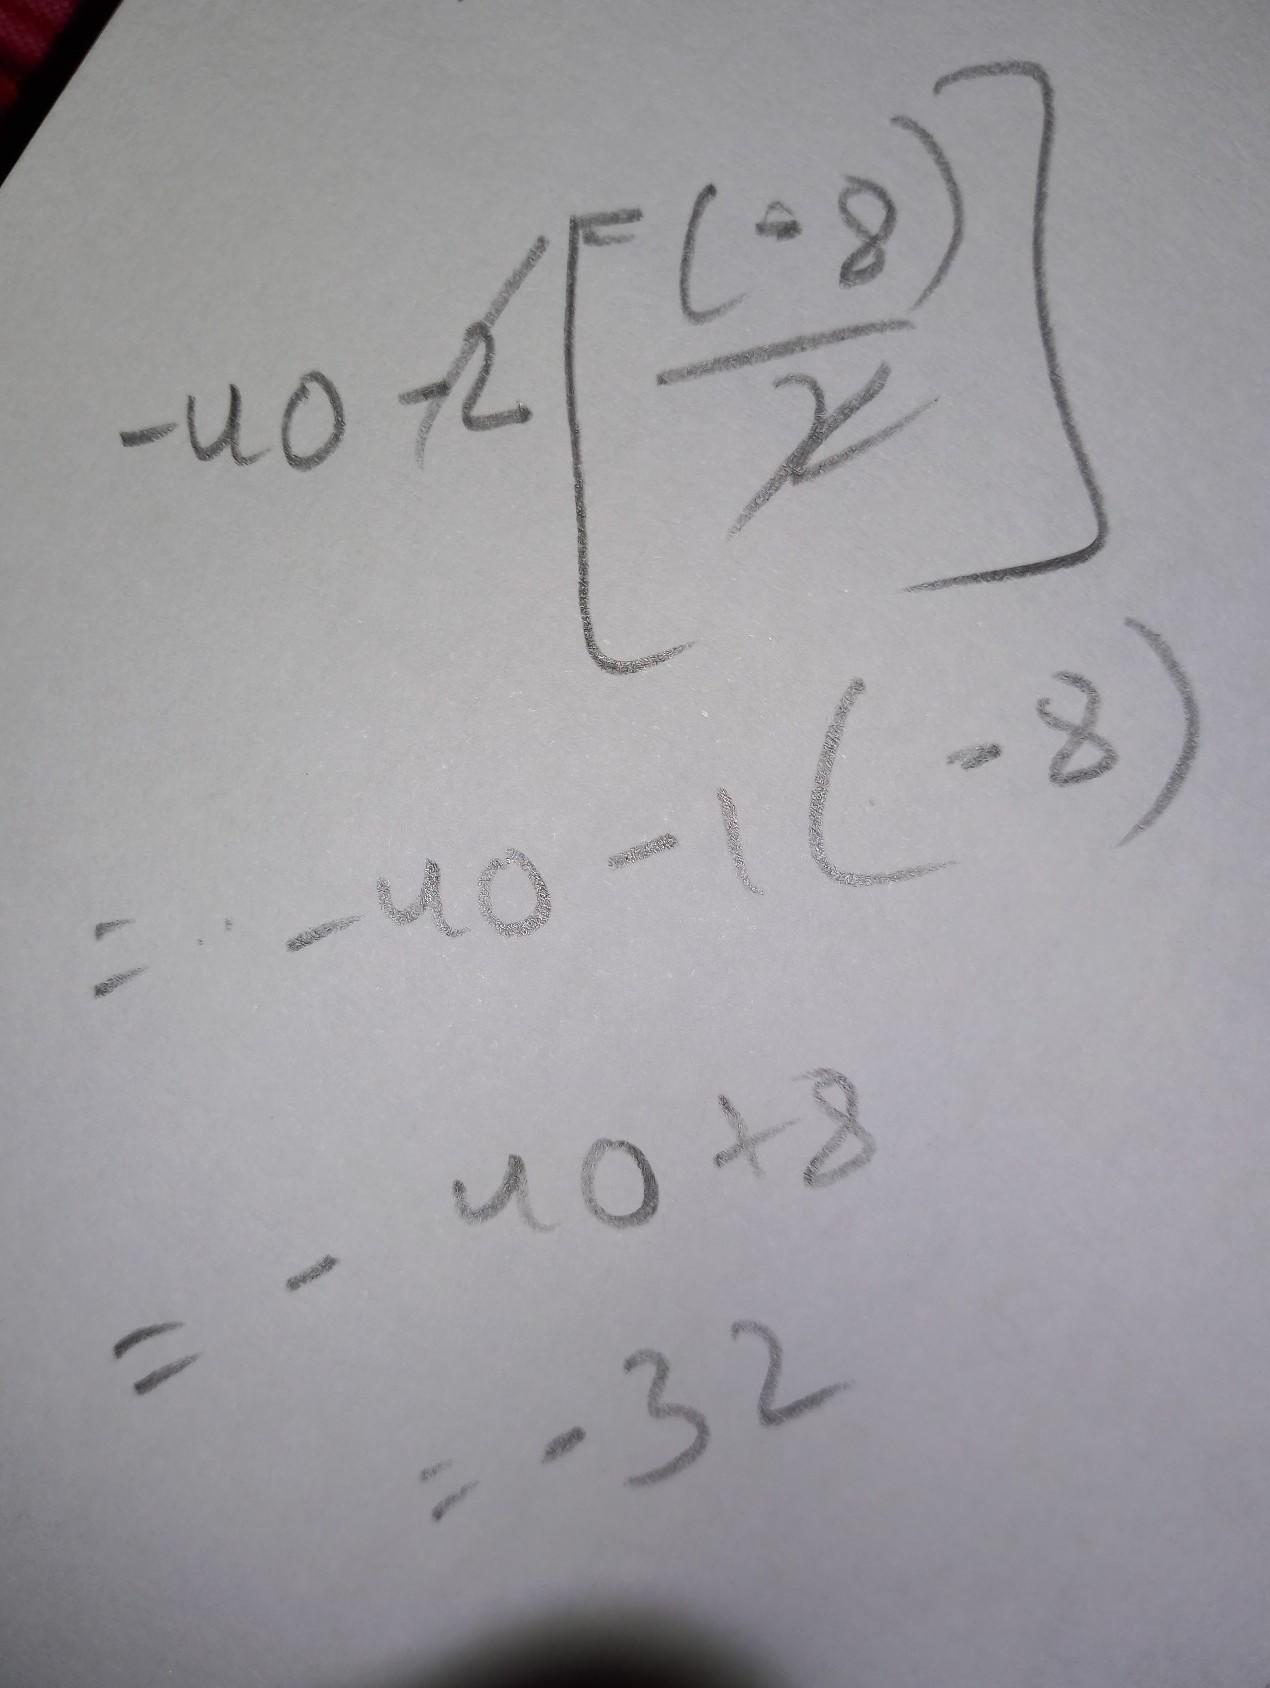 -40 -2 [ (-8) / 2 ]
= -40 -1 (-8)
= -40 +8
= -32